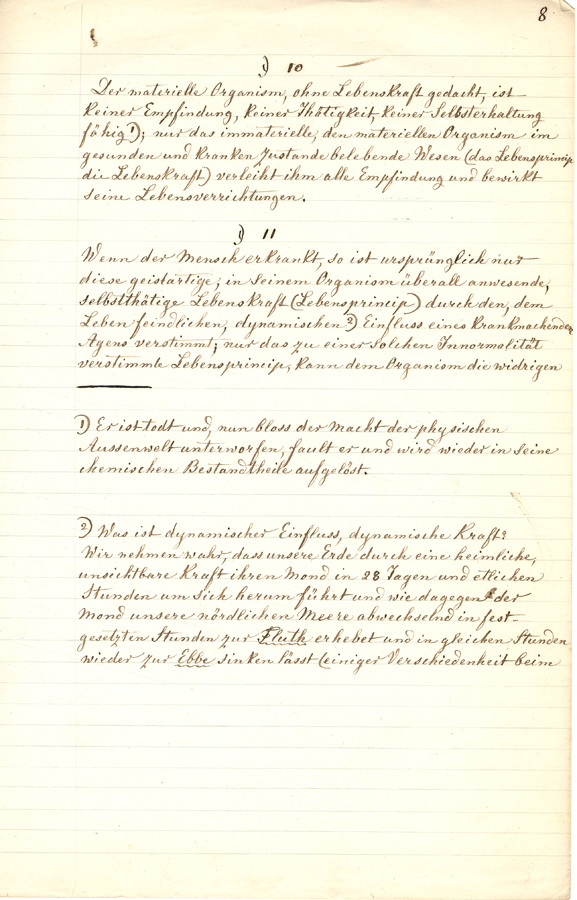 8
§ 10
Der materielle Organism, ohne Lebenskraft gedacht, ist
keiner Empfindung, keiner Thätigkeit, keiner Selbsterhaltung
fähig 1); nur das immaterielle, den materiellen Organism im
gesunden und kranken Zustande belebende Wesen (das Lebensprincip
die Lebenskraft) verleiht ihm alle Empfindung und bewirkt
seine Lebensverrichtungen.
§ 11
Wenn der Mensch erkrankt, so ist ursprünglich nur
diese geistartige, in seinem Organism überall anwesende,
selbstthätige Lebenskraft (Lebensprincip) durch den, dem
Leben feindlichen, dynamischen 2) Einfluss eines krankmachenden
Agens verstimmt; nur das zu einer solchen Innormalität
verstimmte Lebensprincip, kann dem Organism die widrigen
1) Er ist todt und, nun bloss der Macht der physischen
Aussenwelt unterworfen, fault er und wird wieder in seine
chemischen Bestandtheile aufgelöst.
2) Was ist dynamischer Einfluss, dynamische Kraft?
Wir nehmen wahr, dass unsere Erde durch eine heimliche,
unsichtbare Kraft ihren Mond in 28 Tagen und etlichen
Stunden um sich herum führt und wie dagegen der
Mond unsere nördlichen Meere abwechselnd in fest-
gesetzten Stunden zur Fluth erhebet und in gleichen Stunden
wieder zur Ebbe sinken lässt (einiger Verschiedenheit beim